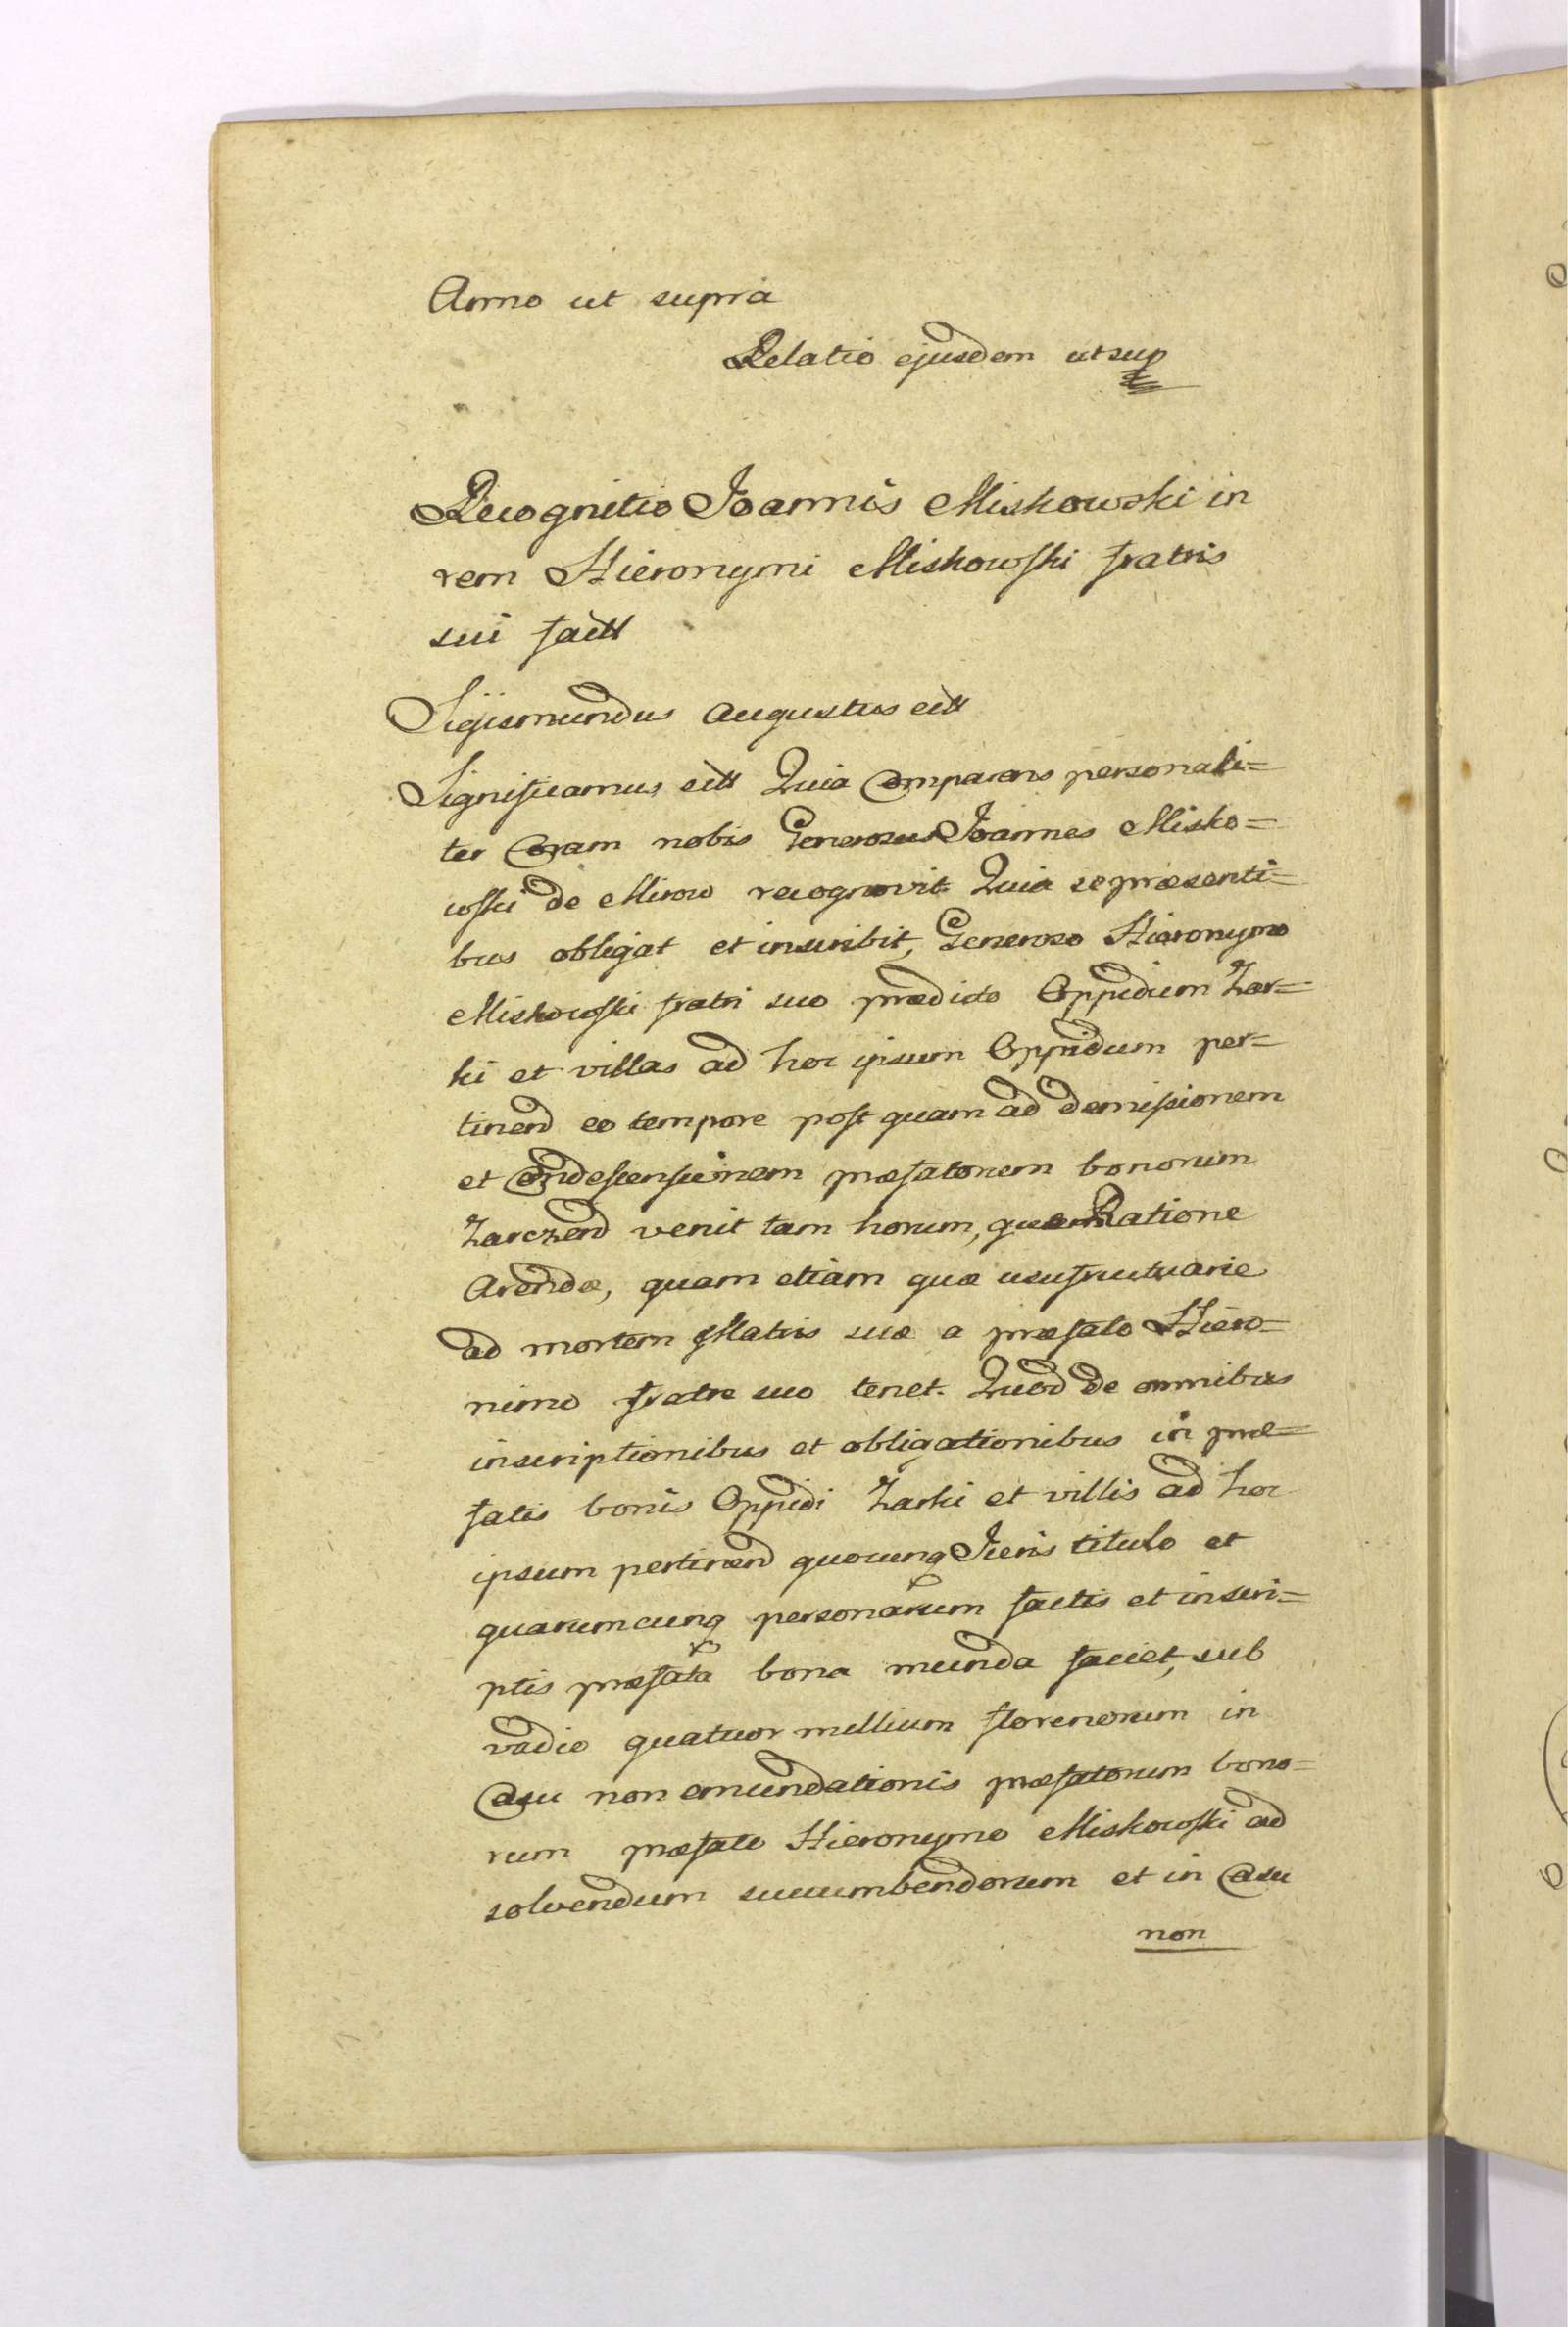 Anno ut supra
Relatio ejusdem ut sup
Recognitio Joannis Miskowski in
rem Hieronymi Miskowski fratris
sui fact
Sigismundus Augustus ett
Significamus ett Quia Comparens personali=
ter Coram nobis Generosus Joannes Misko=
wski de Mirow recognovit. Quia se præsenti=
bus obligat et inscribit, Generoso Hieronymo
Miskowski fratri suo prædicto Oppidum Zar=
ki et villas ad hoc ipsum Oppidum per=
tinend eo tempore post quam ad demissionem
et Condescensionem præfatorem bonorum
Zarczend venit tam horum, quæ Ratione
Arendæ, quam etiam quæ usufructuarie
ad mortem Matris suæ a præfato Hiero=
nimo fratre suo tenet. Quod de omnibus
inscriptionibus et obligationibus in præ=
fatis bonis Oppidi Zarki et villis ad hoc
ipsum pertinend quocunq Juris titulo et
quarumcunq personarum factis et inscri=
ptis præfata bona munda faciet, sub
vadio quatuor millium florenorum in
Casu non emundationis præfatorum bono=
rum præfato Hieronymo Miskowski ad
solvendum succumbendorum et in Casu
non